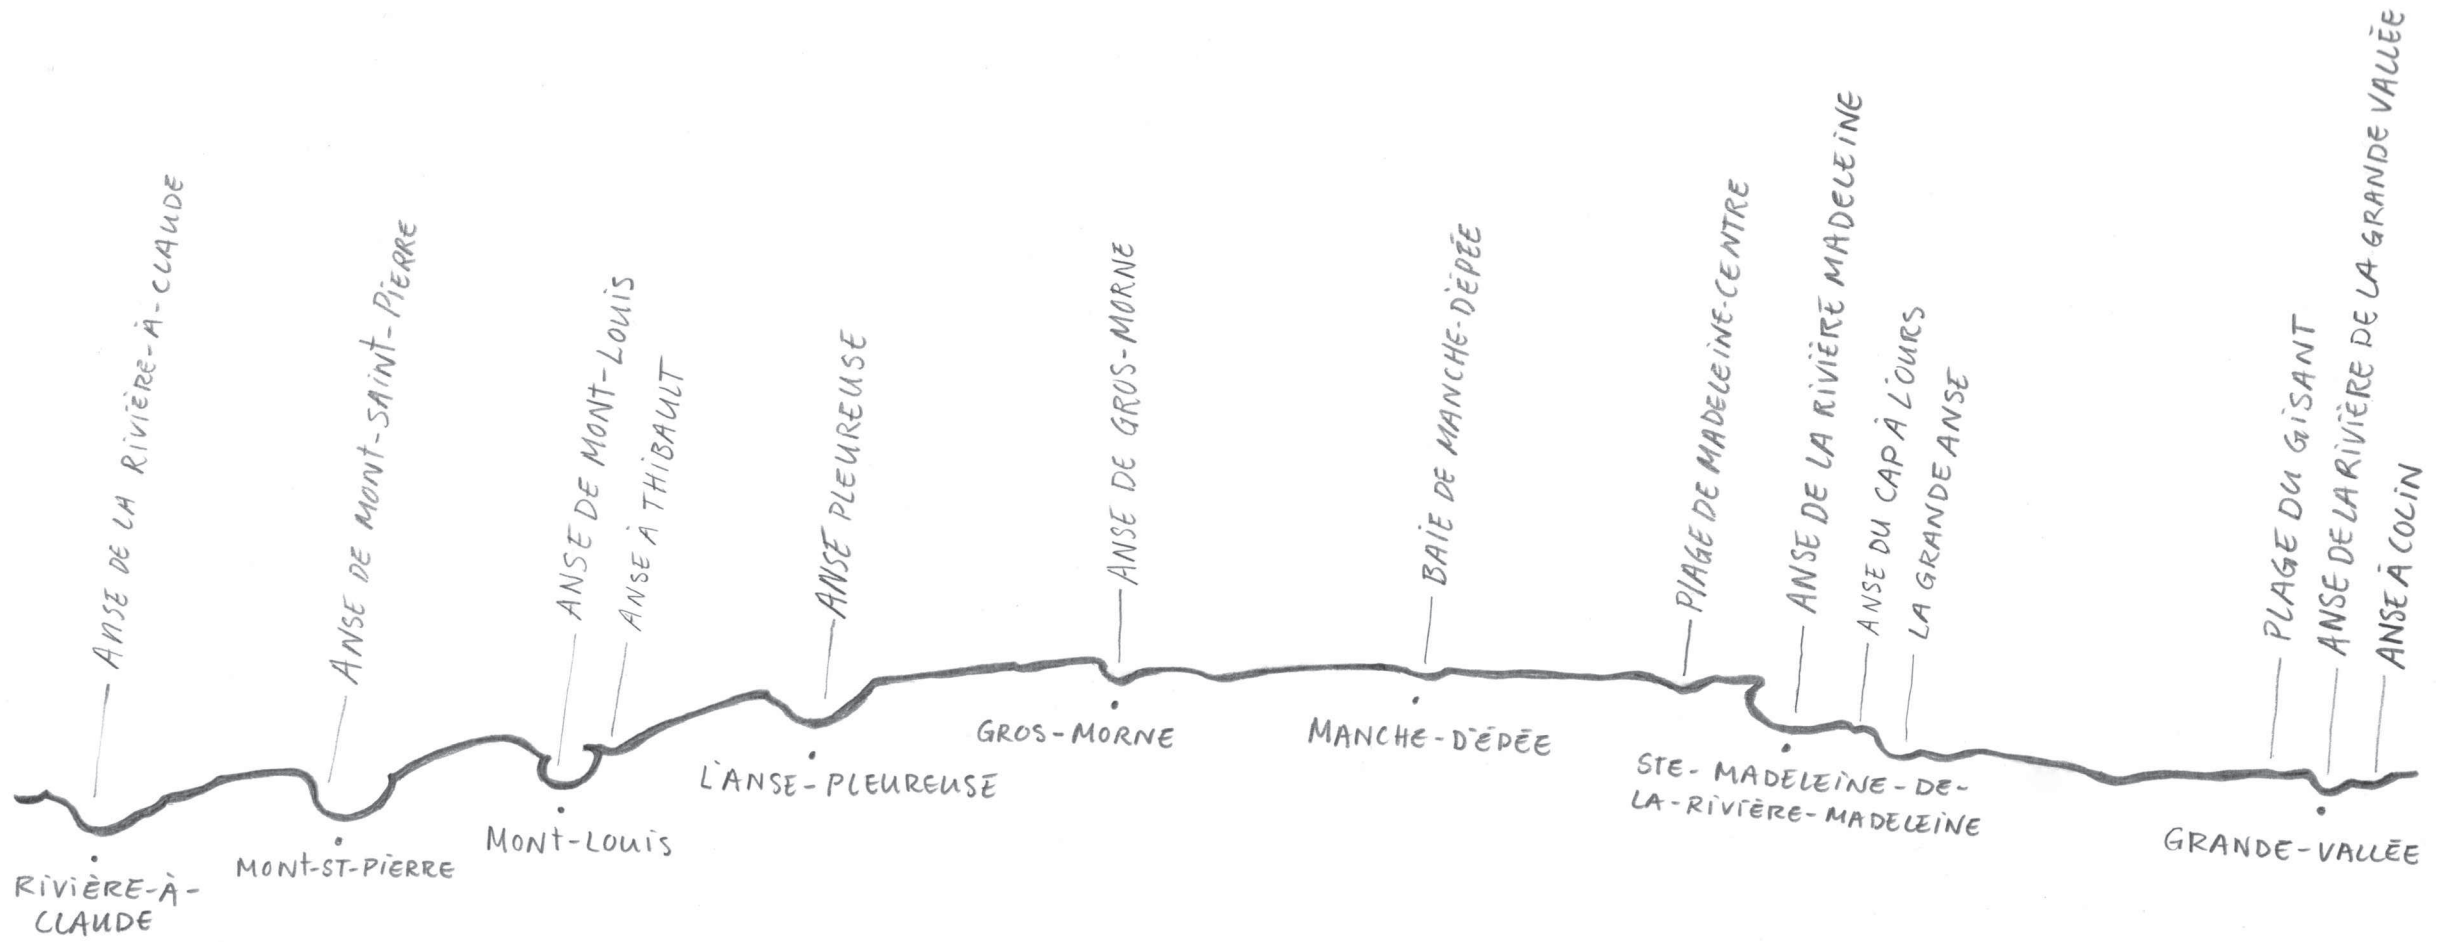 ANSE DE LA RIVIÈRE-À-CLAUDE
ANSE DE MONT-SAINT-PIERRE
ANSE DE MONT-LOUIS
ANSE À THIBAULT
ANSE PLEUREUSE
ANSE DE GROS-MORNE
BAIE DE MANCHE-D'ÉPÉE
PLAGE DE MADELEINE-CENTRE
ANSE DE LA RIVIÈRE MADELEINE
ANSE DU CAP À L'OURS
LA GRANDE ANSE
PLAGE DU GISANT
ANSE DE LA RIVIÈRE DE LA GRANDE VALLÉE
ANSE À COLIN
RIVIÈRE-À-
CLAUDE
MONT-ST-PIERRE
MONT-LOUIS
L'ANSE-PLEUREUSE
GROS-MORNE
MANCHE-D'ÉPÉE
STE-MADELEINE-DE-
LA-RIVIÈRE-MADELEINE
GRANDE-VALLÉE